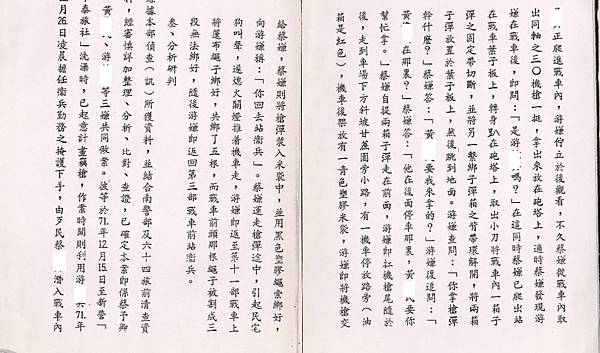 正爬進戰車內，游嫌佇立於後觀看，不久蔡嫌從戰車內取
出同軸之三〇機槍一挺，拿出來放在砲塔上，適時蔡嫌發現游
嫌在戰車後，即問：「是游嗎？」在這同時蔡嫌已爬出站
在戰車葉子板上，轉身趴在砲塔上，取出小刀將戰車內一箱子
彈之固定帶切斷，並將另一繫綁子彈箱之背帶環解開，將兩箱
子彈放置於葉子板上，然後跳到地面。游嫌查問：「你拿槍彈
幹什麼？」蔡嫌答：「黃要我來拿的？」游嫌復追問：「
黃在那裏？」蔡嫌答：「他在後面停車那裏，黃要你
幫忙拿。」蔡嫌自提兩箱子彈走在前面，游嫌即扛機槍尾隨於
後，走到車場下方斜坡甘蔗園旁小路，有一機車停放路旁（油
箱是紅色），機車後架放有一青色塑膠米袋，游嫌即將機槍交
給蔡嫌，蔡嫌則將槍彈裝入米袋中，並用黑色塑膠繩索綁好，
向游嫌稱：「你回去站衛兵」。蔡嫌運走槍彈途中，引起民宅
狗叫聲，遂熄火關燈推著機車走，游嫌即返至第十一部戰車上
將蓬布繩子綁好，共綁了五根，而戰車前頭那根繩子被割成三
段無法綁好，隨後游嫌即返回第三部戰車前站衛兵。
叁、分析研判
據本部偵查（訊）所獲資料，並結合南警部及六十四旅前清查資
，經審慎詳加整理、分析、比對、查證，已確定本案即係蔡予卿
黃、游等三嫌共同做案。彼等於71年12月15日至新營「
泰旅社」洗澡時，已起意計畫竊槍，作案時間則利用游71年
月26日凌晨擔任衛兵勤務之掩護下手，由歹民蔡潛入戰車內